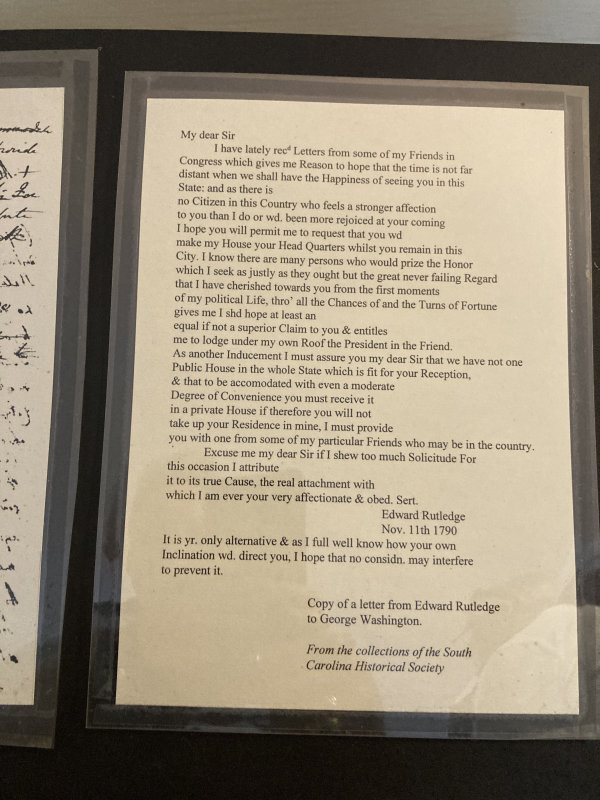 My dear Sir
I have lately recᵈ Letters from some of my Friends in
Congress which gives me Reason to hope that the time is not far
distant when we shall have the Happiness of seeing you in this
State: and as there is
no Citizen in this Country who feels a stronger affection
to you than I do or wd. been more rejoiced at your coming
I hope you will permit me to request that you wd
make my House your Head Quarters whilst you remain in this
City. I know there are many persons who would prize the Honor
which I seek as justly as they ought but the great never failing Regard
that I have cherished towards you from the first moments
of my political Life, thro' all the Chances of and the Turns of Fortune
gives me I shd hope at least an
equal if not a superior Claim to you & entitles
me to lodge under my own Roof the President in the Friend.
As another Inducement I must assure you my dear Sir that we have not one
Public House in the whole State which is fit for your Reception,
& that to be accomodated with even a moderate
Degree of Convenience you must receive it
in a private House if therefore you will not
take up your Residence in mine, I must provide
you with one from some of my particular Friends who may be in the country.
Excuse me my dear Sir if I shew too much Solicitude For
this occasion I attribute
it to its true Cause, the real attachment with
which I am ever your very affectionate & obed. Sert.
Edward Rutledge
Nov. 11th 1790
It is yr. only alternative & as I full well know how your own
Inclination wd. direct you, I hope that no considn. may interfere
to prevent it.
Copy of a letter from Edward Rutledge
to George Washington.
From the collections of the South
Carolina Historical Society